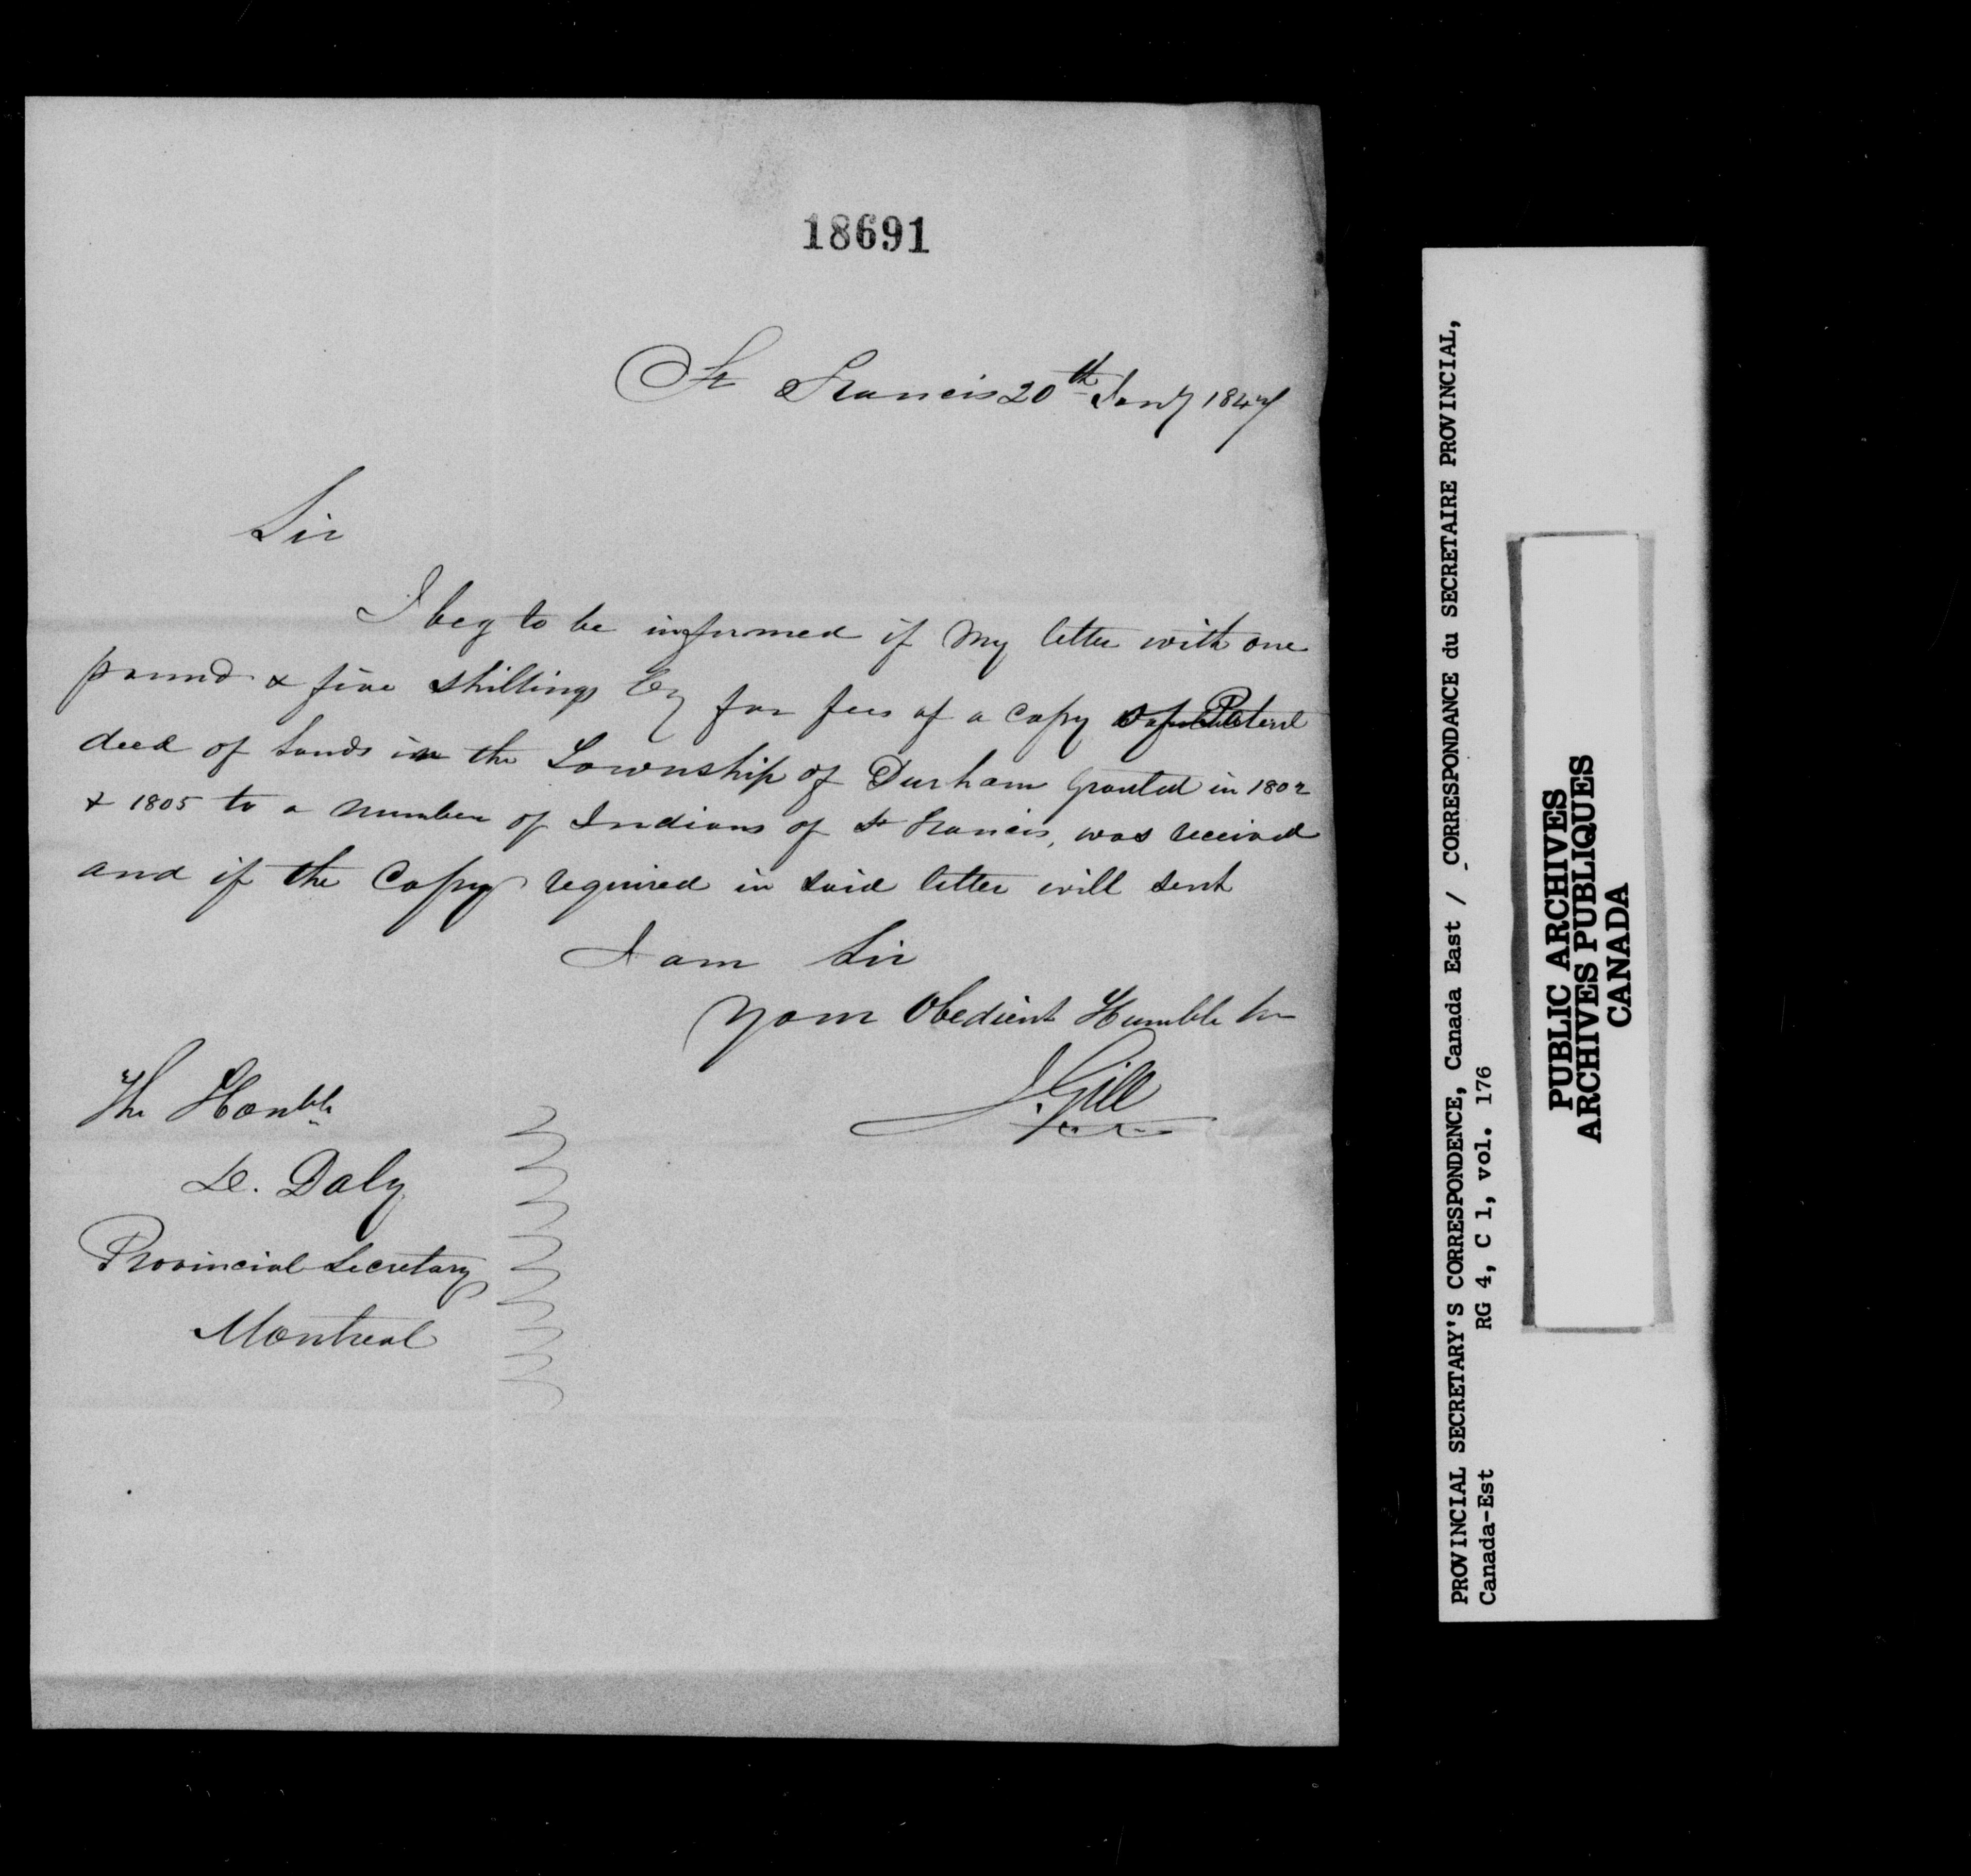 18691
St Francis 20th Jany 1847
Sir
I beg to be informed if my letter with one
pound & five shillings Cy for fees of a copy of Patent
deed of Lands in the Township of Durham granted in 1802
& 1805 to a number of Indians of St Francis, was received
and if the Copy required in said letter will sent
I am Sir
your Obedient Humble
J. Gill
The Honble
D. Daly
Provincial Secretary
Montreal
PROVINCIAL SECRETARY'S CORRESPONDENCE, Canada East / CORRESPONDANCE du SECRETAIRE PROVINCIAL,
Canada-Est RG 4, C 1, vol. 176
PUBLIC ARCHIVES
ARCHIVES PUBLIQUES
CANADA